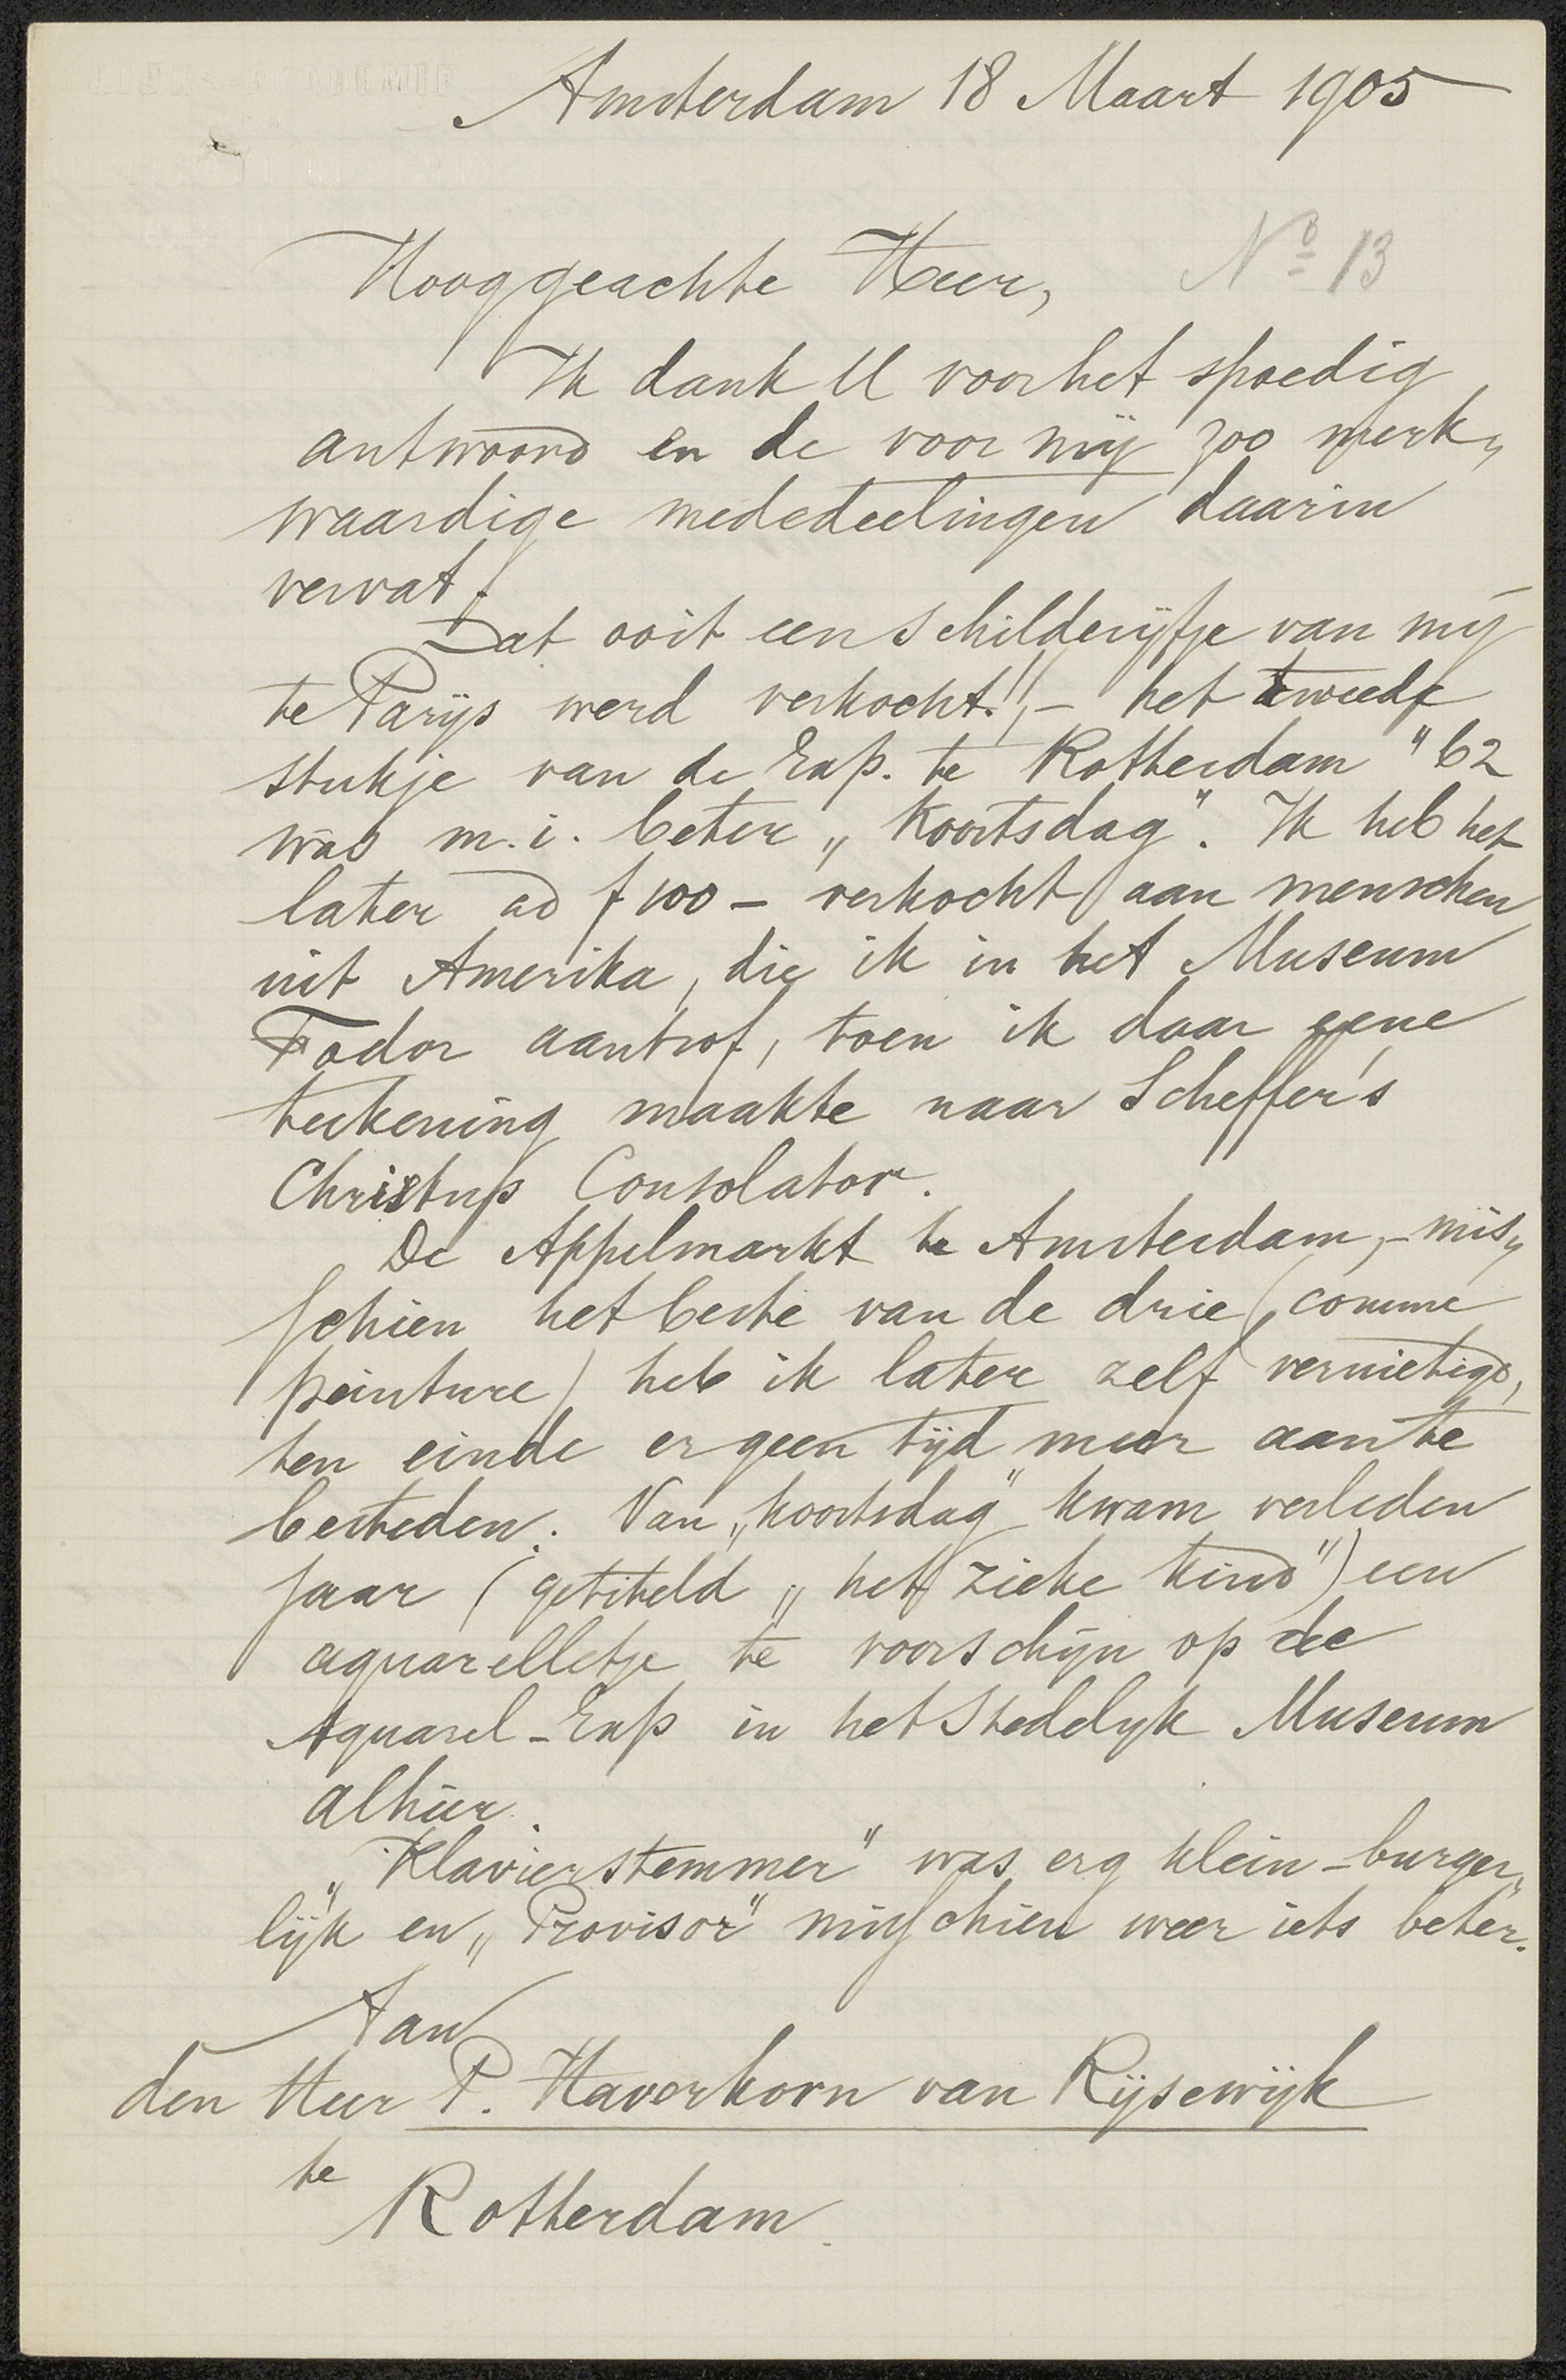 Amsterdam 18 Maart 1905
Hooggeachte Heer, No 13
Ik dank U voor het spoedig
antwoord en de voor mij zoo merk„
waardige mededeelingen daarin
vervat.
Dat ooit een schilderijtje van mij
te Parijs werd verkocht!!, – het tweede
stukje van de Exp. te Rotterdam "62
was m.i. beter „Koortsdag". Ik heb het
later ad f 100 – verkocht aan menschen
uit Amerika, die ik in het Museum
Fodor aantrof, toen ik daar eene
teekening maakte naar Scheffer's
Christus Consolator.
De Appelmarkt te Amsterdam, – mis„
schien het beste van de drie (comme
peinture) heb ik later zelf vernietigd,
ten einde er geen tijd meer aan te
besteden. Van „koortsdag" kwam verleden
jaar (getiteld „het zieke kind") een
aquarelletje te voorschijn op de
Aquarel-Exp in het Stedelijk Museum
alhier.
„Klavierstemmer" was erg klein-burger„
lijk en „Provisor" misschien weer iets beter.
Aan
den Heer P. Haverkorn van Rijsewijk
te
Rotterdam.